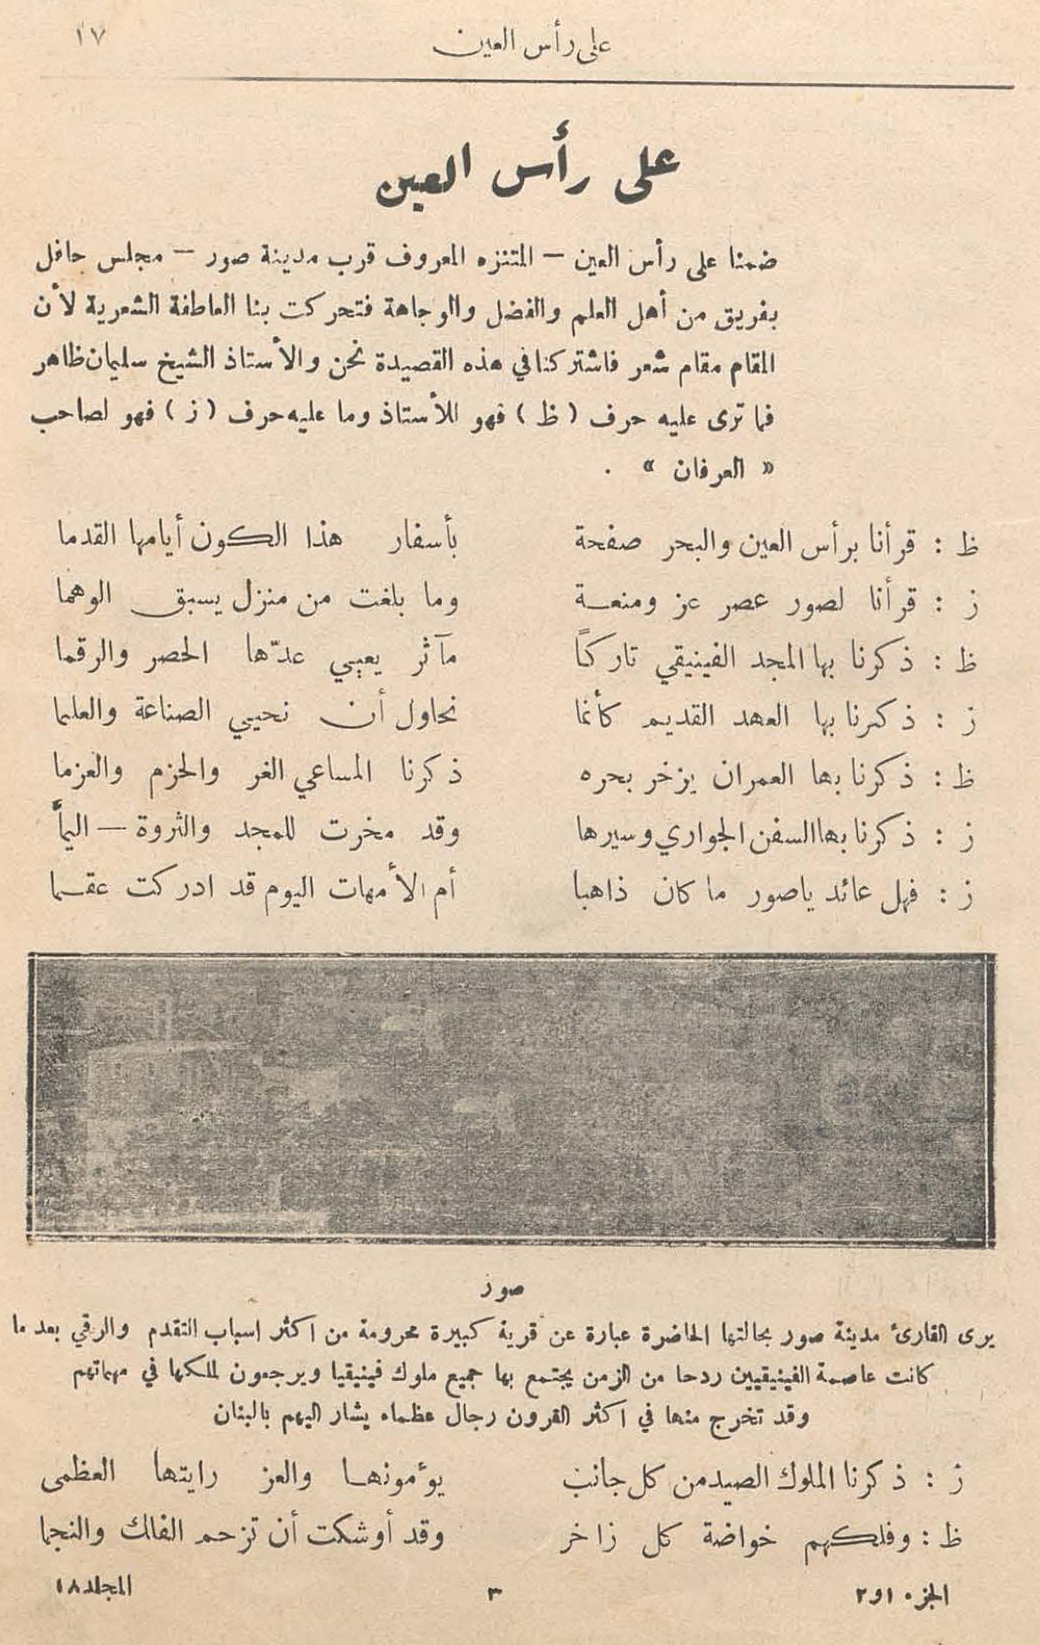 على رأس العين ١٧
على رأس العين
ضمنا على رأس العين – المتنزه المعروف قرب مدينة صور – مجلس حافل
بفريق من أهل العلم والفضل والوجاهة فتحركت بنا العاطفة الشعرية لأن
المقام مقام شعر فاشتركنا في هذه القصيدة نحن والأستاذ الشيخ سليمان ظاهر
فما ترى عليه حرف ( ظ ) فهو للأستاذ وما عليه حرف ( ز ) فهو لصاحب
« العرفان » .
ظ : قرأنا برأس العين والبحر صفحة بأسفار هذا الكون أيامها القدما
ز : قرأنا لصور عصر عز ومنعة وما بلغت من منزل يسبق الوهما
ظ : ذكرنا بها المجد الفينيقي تاركاً مآثر يعيي عدّها الحصر والرقما
ز : ذكرنا بها العهد القديم كأنما نحاول أن نحيي الصناعة والعلما
ظ : ذكرنا بها العمران يزخر بحره ذكرنا المساعي الغر والحزم والعزما
ز : ذكرنا بها السفن الجواري وسيرها وقد مخرت للمجد والثروة – اليمأ
ز : فهل عائد ياصور ما كان ذاهبا أم الأمهات اليوم قد ادركت عقما
صور
يرى القارئ مدينة صور بحالتها الحاضرة عبارة عن قرية كبيرة محرومة من اكثر اسباب التقدم والرقي بعد ما
كانت عاصمة الفينيقيين ردحا من الزمن يجتمع بها جميع ملوك فينيقيا ويرجعون لملكها في مهماتهم
وقد تخرج منها في اكثر القرون رجال عظماء يشار اليهم بالبنان
ز : ذكرنا الملوك الصيد من كل جانب يؤمونها والعز رايتها العظمى
ظ : وفلكهم خواضة كل زاخر وقد أوشكت أن تزحم الفلك والنجما
الجزء ١و٢ ٣ المجلد ١٨